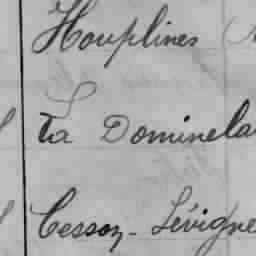 Houplines
La Dominela
Cesson-Sévigné